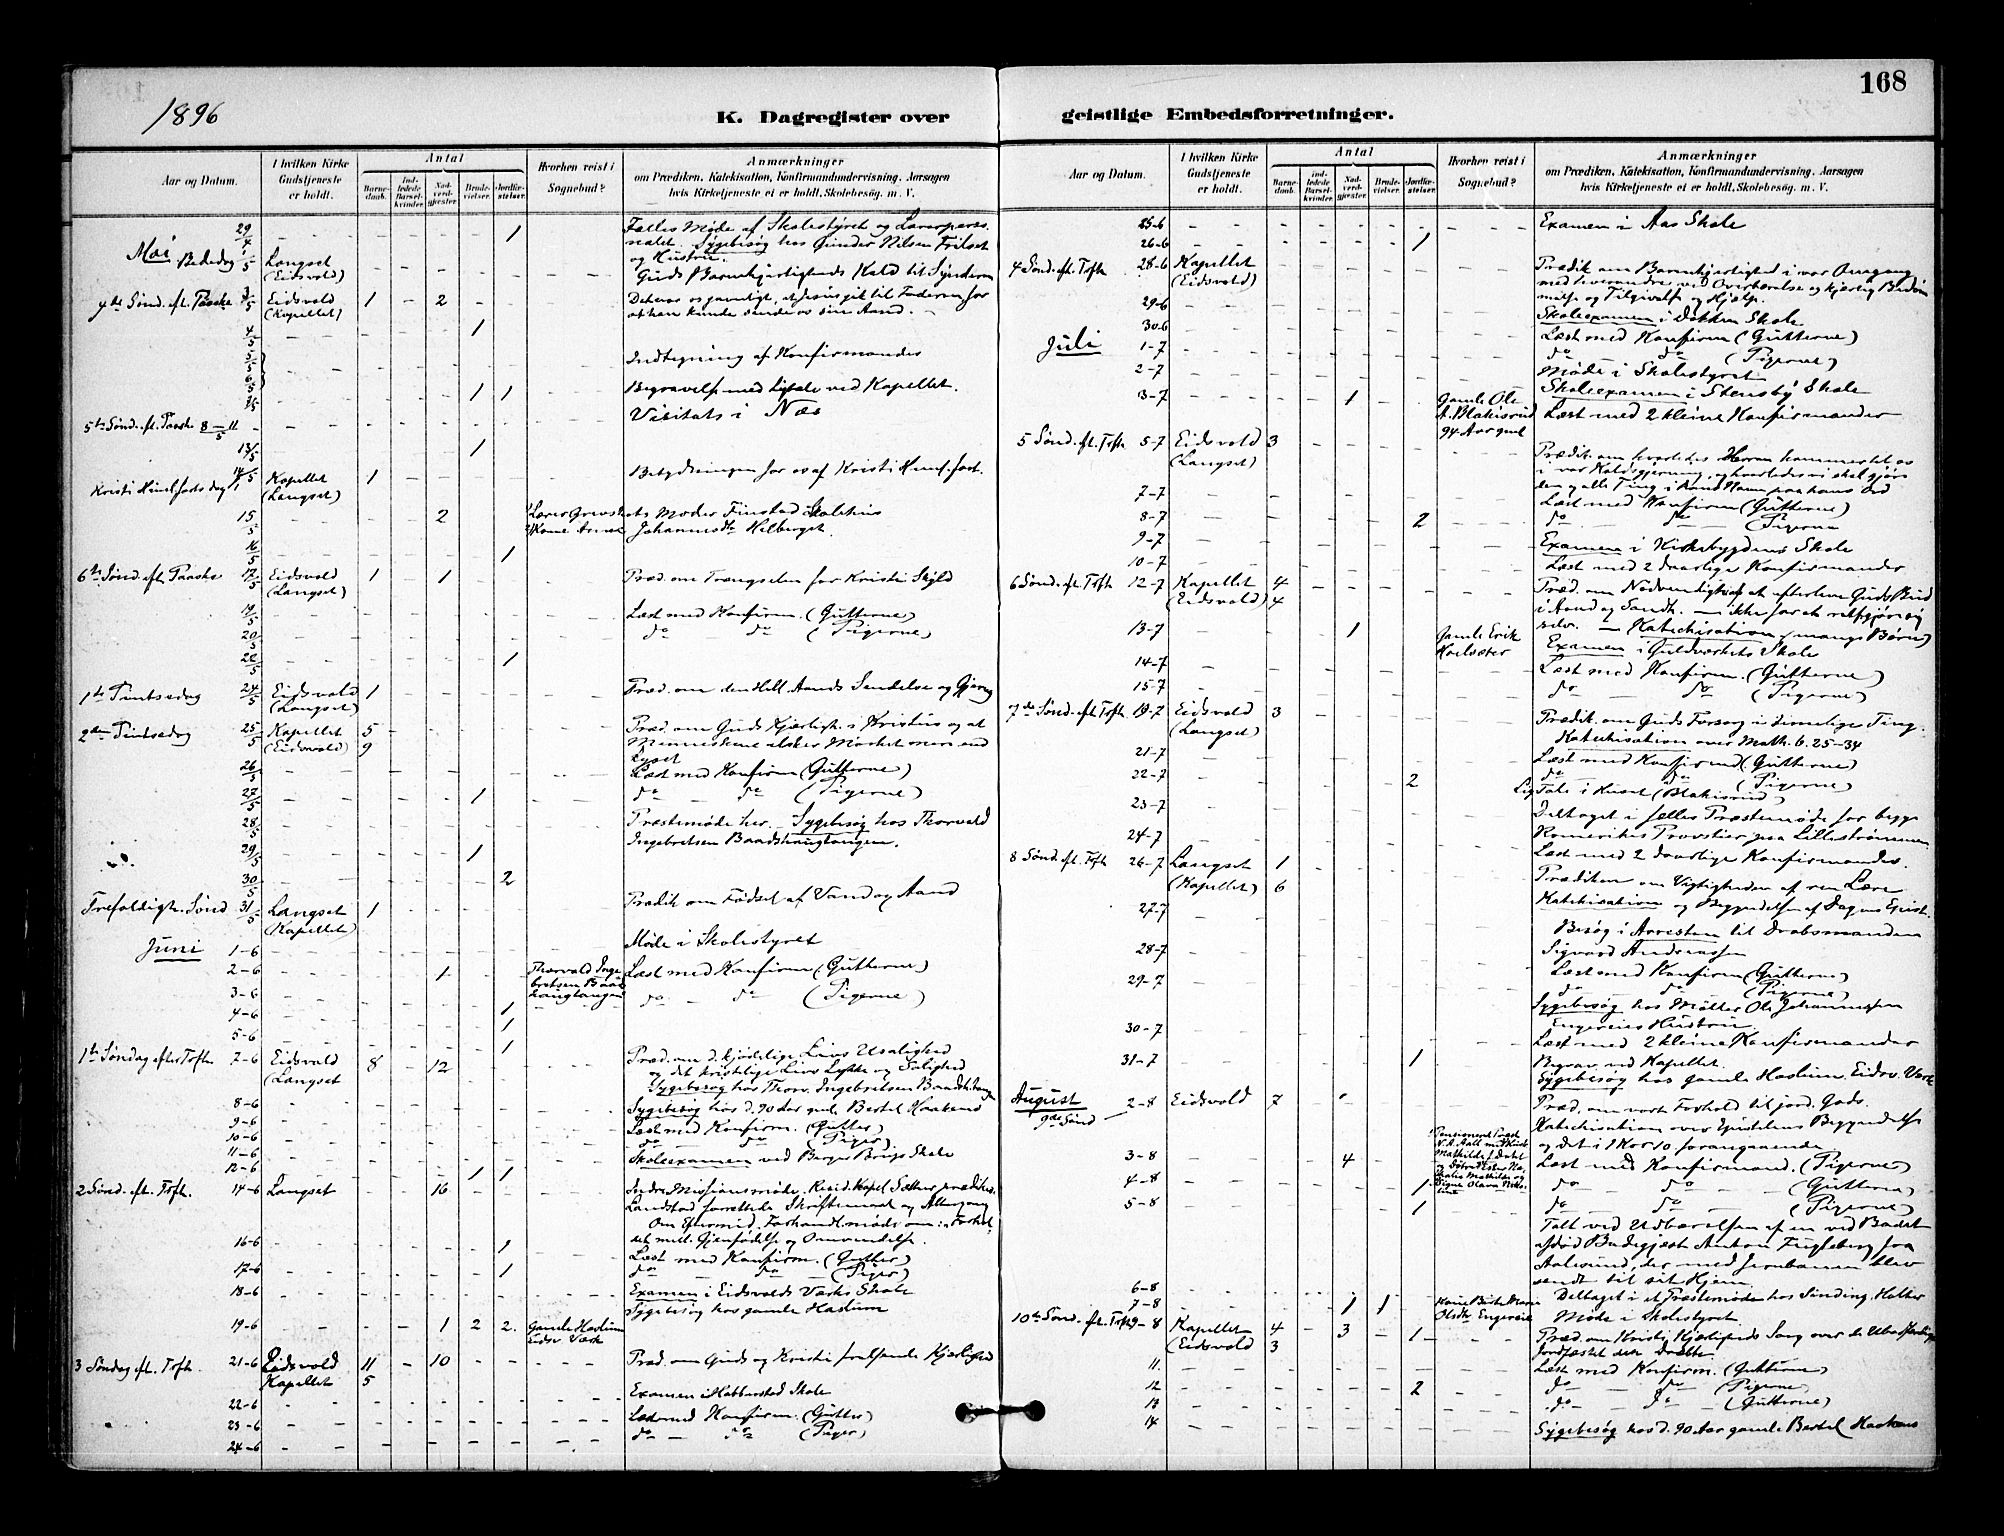 168
1896
K. Dagregister over geistlige Embedsforretninger.
Aar og Datum.
I hvilken Kirke Gudstjeneste er holdt.
Antal
Barnedaab.
Indledede Barselkvinder.
Nadverdgjester.
Brudevielser.
Jordfæstelser.
Hvorhen reist i Sognebud?
Anmærkninger
om Prædiken, Katekisation, Konfirmandundervisning, Aarsagen
hvis Kirketjeneste ei er holdt, Skolebesøg. m. V.
29/4 1 Fælles Møde af Skolestyret og Lærerperso-
nalet. Sygebesøg hos Gunder Nilsen Frilset
og Hustru.
Mai Bededag 1/5 Langset
(Eidsvold) Guds Barmhjertigheds Kald til Synderen
4de Sønd. eft. Paaske 3/5 Eidsvold 1 2 Det er os gavnligt, at Jesus gik til Faderen for
(Kapellet) at han kunde sende os sin Aand.
4/5 1
5/5 Indtegning af Konfirmander
6/5
7/5 1 1 Begravelse med Ligtale ved Kapellet.
5te Sønd. eft. Paaske 8-11/5 Visitats i Næs
13/5 1
Kristi Himmelfartsdag 14/5 Kapellet 1 Betydningen for os af Kristi Himmelfart.
(Langset)
15/5 2 Moder Finstad Skolehus
Johannesdtr Hilberget.
16/5 1
6te Sønd. eft. Paaske 17/5 Eidsvold 1 1 Præd. om Trængselen for Kristi Skyld
(Langset)
19/5 Læst med Konfirm. (Gutterne)
20/5 do do (Pigerne)
22/5 1
1te Pintsedag 24/5 Eidsvold 1 Præd. om den Hell. Aands Sendelse og Gjerng
(Langset)
2den Pintsedag 25/5 Kapellet 5 Præd. om Guds Kjærligh. i Kristus og at
(Eidsvold) 9 Menneskene elsker Mørket mere end
Lyset
26/5 Læst med Konfirm (Gutterne)
27/5 1 do do (Pigerne)
28/5 Præstemøde her. Sygebesøg hos Thorvald
Ingebretsen Baadshaugtangen.
29/5 1
30/5 2
Trefoldigh. Sønd 31/5 Langset 1 Prædik om Fødsel af Vand og Aand
(Kapellet)
Juni 1-6 Møde i Skolestyret
2-6 1 Thorvald Inge-
bretsen Baads-
haugtangen Læst med Konfirm (Gutterne)
3-6 do do (Pigerne)
4-6 1
5-6 1
1te Søndag efter Trefh 7-6 Eidsvold 8 12 1 Præd. om d. kjødelige Livs Usalighed
(Langset og det kristelige Livs Lykke og Salighed
Sygebesøg hos Thorv. Ingebretsen Baadsh.tangen
8-6 Sygebesøg hos d. 90 Aar gml. Bertel Haakens
9-6 Læst med Konfirm. (Gutter)
10-6 do do (Piger).
11-6 Skoleexamen ved Skole
12-6 1 1
2 Sønd. eft. Trefh. 14-6 Langset 16 Indre Missionsmøde. Resid. Kapel Sæther prædikes.
Landstad forrettede Skriftemaal og Altergang
Om Efterмid. Forhandl.møde om: Forhol
det mell. Gjenfødelse og Omvendelse.
16-6 1 Læst med Konfirm. (Gutter)
17-6 1 do do (Piger)
18-6 Examen i Eidsvolds Værks Skole
19-6 1 2 2. Gamle Haslum
Eidsv Værk Sygebesøg hos gamle Haslum
3 Søndag eft. Trefh. 21-6 Eidsvold 11 10 Præd. om Guds og Kristi frelsende Kjærlighed
Kapellet 5
22-6 Examen i Habberstad Skole
23-6 Læst med Konfirm. (Gutter)
24-6 do do (Piger)
Aar og Datum.
I hvilken Kirke Gudstjeneste er holdt.
Antal
Barnedaab.
Indledede Barselkvinder.
Nadverdgjester.
Brudevielser.
Jordfæstelser.
Hvorhen reist i Sognebud?
Anmærkninger
om Prædiken, Katekisation, Konfirmandundervisning. Aarsagen
hvis Kirketjeneste ei er holdt, Skolebesøg. m. V.
25-6 Examen i Aas Skole
26-6 1
4 Sønd. eft. Trefh 28-6 Kapellet
(Eidsvold) Prædik om Barmhjertighed i vor Omgang
med hverandre ved Overbærelse og kjærlig Bedøm
melse og Tilgivelse og Hjælp.
29-6 Skoleexamen i Dokken Skole
30-6 Læst med Konfirm (Gutterne)
Juli 1-7 do do (Pigerne)
2-7 Møde i Skolestyret
3-7 1 Gamle Ole
A. Blakisrud
94 Aar gml Skoleexamen i Stensby Skole
Læst med 2 kleine Konfirmander
5 Sønd. eft. Trefh 5-7 Eidsvold 3
(Langset) Prædik. om hvorledes Herren kommer til os
i vor Kaldsgjerning, og hvorledes vi skal gjøre
den og alle Ting i hans Navn paa hans Ord
7-7 Læst med Konfirm (Gutterne)
8-7 2 do do (Pigerne
9-7 Examen i Kirkebygdens Skole
10-7 Læst med 2 daarlige Konfirmander
6 Sønd. eft. Trefh 12-7 Kapellet 4
(Eidsvold) 4 Præd. om Nødvendigh. af at efterleve Guds Bud
i Aand og Sandh. – ikke for at retfgjøre sig
selv. – Katechisation (mange Børn)
13-7 1 Gamle Erik
Examen i Guldværkets Skole
14-7 Læst med Konfirm. (Gutterne)
15-7 do do (Pigerne)
7de Sønd. eft. Trefh. 19-7 Eidsvold 3
(Langset) Prædik. om Guds Forsorg i timelige Ting.
Katechisation over Math. 6. 25-34
21-7 Læst med Konfirmd (Gutterne)
22-7 2 do do (Pigerne)
Lig Tale i Huset (Blakisrud)
23-7 Deltaget i fælles Præstemøde for begge
24-7 Romerikes Provstier paa Lillestrømmen
Læst med 2 daarlige Konfirmander.
8 Sønd. eft. Trefh 26-7 Langset 1
(Kapellet) 6 Prædiken om Vigtigheden af ren Lære
Katechisation og Begyndelsen af Dagens Epist.
27-7 Besøg i Arresten til Drabsmanden
28-7 Sigvard Andreassen
29-7 Læst med Konfirm (Gutterne)
do do (Pigerne)
Sygebesøg hos Møller Ole Johannessen
30-7 Engereies Hustru
Læst med 2 kleine Konfirmander
31-7 1 Begrav. ved Kapellet.
Sygebesøg hos gamle Haslum. Eidsv. Værk
August 2-8 Eidsvold 7
9de Sønd Præd. om vort Forhold til jord. Gods.
Katechisation over Epistelens Begyndelse
og det i 1 Kor 10 foregaaende
3-8 4 Pensioneret Præst
N. A. Aall med Hust
Mathilde f. Dahl
og
Mathilde og
Signe Olava Læst med Konfirmand. (Pigerne)
4-8 1 do do (Gutterne)
5-8 1 do do (Pigerne)
Talt ved Udbærelsen af en ved Badet
afdød Badegjæst Anton Fugleberg fra
Aalesund, der med Jernbanen blev
sendt til sit Hjem.
6-8 Deltaget i et Præstemøde hos Sinding, Holter
7-8 1 1 Kone Berte Marie
Olsdtr Engereie Møde i Skolestyret.
10de Sønd. eft. Trefh 9-8 Kapellet 4 3 1
(Eidsvold 3 Præd. om Kristi Kjærligheds Sorg over de Ubodfærdige
Jordfæstet der
11. Læst med Konfirm. (Gutterne)
12 2 do do (Pigerne)
13 do do (Gutterne)
14 Sygebesøg hos d. 90 Aar gamle Bertel Haakens